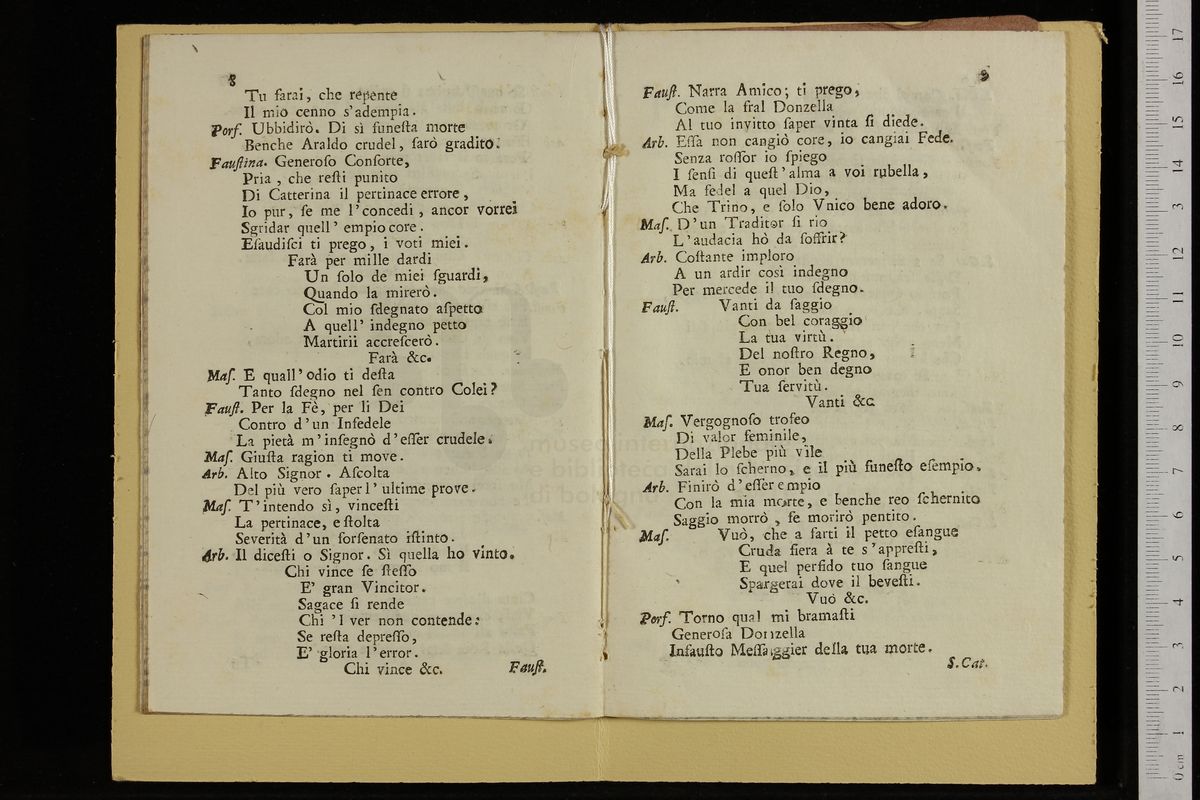 8
Tu ſarai, che repente
Il mio cenno s'adempia.
Porf. Ubbidirò. Di sì funeſta morte
Benche Araldo crudel, ſarò gradito.
Fauſtina. Generoſo Conſorte,
Pria, che reſti punito
Di Catterina il pertinace errore,
Io pur, ſe me l'concedi, ancor vorrei
Sgridar quell' empio core.
Eſaudiſci ti prego, i voti miei.
Farà per mille dardi
Un ſolo de miei ſguardi,
Quando la mirerò.
Col mio ſdegnato aſpetto
A quell' indegno petto
Martirii accreſcerò.
Farà &c.
Maſ. E quall'odio ti deſta
Tanto ſdegno nel ſen contro Colei?
Fauſt. Per la Fè, per li Dei
Contro d'un Infedele
La pietà m'inſegnò d'eſſer crudele.
Maſ. Giuſta ragion ti move.
Arb. Alto Signor. Aſcolta
Del più vero ſaper l'ultime prove.
Maſ. T'intendo sì, vinceſti
La pertinace, e ſtolta
Severità d'un forſenato iſtinto.
Arb. Il diceſti o Signor. Sì quella ho vinto.
Chi vince ſe ſteſſo
E' gran Vincitor.
Sagace ſi rende
Chi 'l ver non contende:
Se reſta depreſſo,
E' gloria l'error.
Chi vince &c.
Fauſt.
9
Fauſt. Narra Amico; ti prego,
Come la fral Donzella
Al tuo invitto ſaper vinta ſi diede.
Arb. Eſſa non cangiò core, io cangiai Fede.
Senza roſſor io ſpiego
I ſenſi di queſt'alma a voi rubella,
Ma fedel a quel Dio,
Che Trino, e ſolo Vnico bene adoro.
Maſ. D'un Traditor ſi rio
L'audacia hò da ſoffrir?
Arb. Coſtante imploro
A un ardir così indegno
Per mercede il tuo ſdegno.
Fauſt. Vanti da ſaggio
Con bel coraggio
La tua virtù.
Del noſtro Regno,
E onor ben degno
Tua ſervitù.
Vanti &c.
Maſ. Vergognoſo trofeo
Di valor feminile,
Della Plebe più vile
Sarai lo ſcherno, e il più funeſto eſempio.
Arb. Finirò d'eſſer empio
Con la mia morte, e benche reo ſchernito
Saggio morrò, ſe morirò pentito.
Maſ. Vuò, che a farti il petto eſangue
Cruda fiera à te s'appreſti,
E quel perfido tuo ſangue
Spargerai dove il beveſti.
Vuò &c.
Porf. Torno qual mi bramaſti
Generoſa Donzella
Infauſto Meſſaggier della tua morte.
S. Cat.
museo inter
biblioteca
di bologna
0 cm 1 2 3 4 5 6 7 8 9 10 11 12 13 14 15 16 17